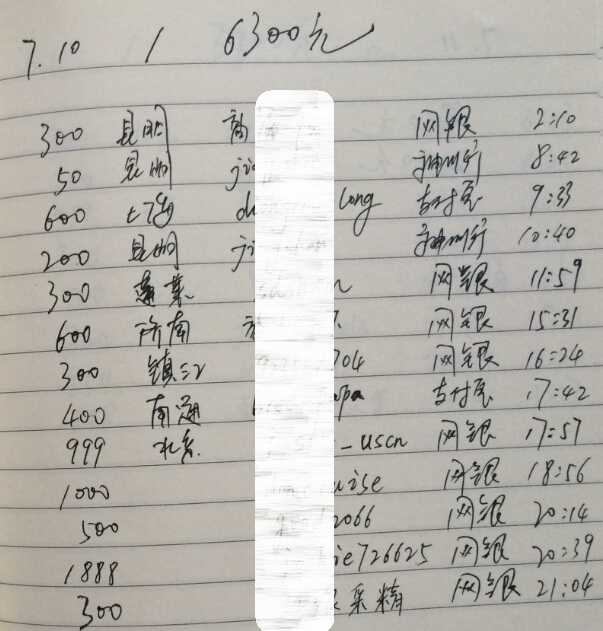 7.10 1 6300元
300 昆明 网银 2:10
50 昆明 ji 神州行 8:42
600 上海 du long 支付宝 9:33
200 昆明 ji 神州行 10:40
300 蓬莱 n 网银 11:59
600 济南 网银 15:31
300 镇江 704 网银 16:24
400 南通 opa 支付宝 17:42
999 北京 _uscn 网银 17:57
1000 uise 网银 18:56
500 2066 网银 20:14
1888 ie726625 网银 20:39
300 采精 网银 21:04